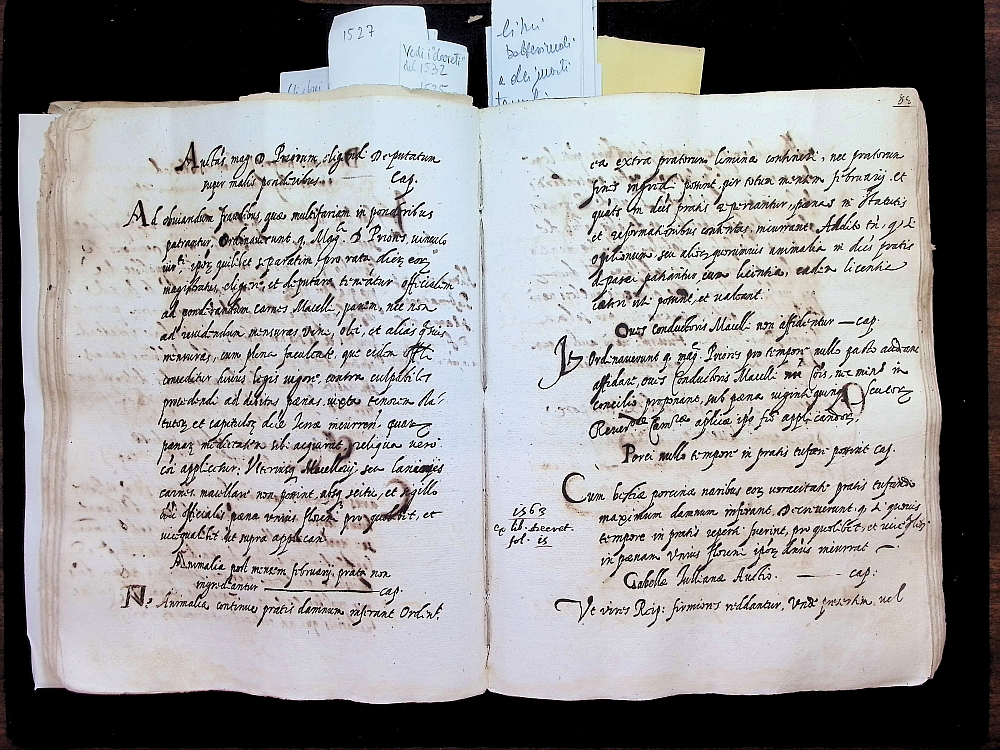 1527
Vedi i decreti
del 1532
1535
libri
a dei
85
Auctus mag. D. Priorum, eligendi Deputatum
super malis ponderibus. Cap.
Ad obviandum fraudibus, quae multifariam in ponderibus
patrantur, Ordinaverunt q. Mag.ci D. Priores, vinculo
quilibet separatim pro rata dictor. eor.
magistratus, eligere, et deputare teneatur officialem
ad ponderandum carnes Macelli, panem, nec non
ad videndum mensuras vini, olei, et alias
mensuras, cum plena facultate, que eidem Offli
conceditur huius legis vigore, contra culpabiles
procedendi ad debitas paenas, iuxta tenorem sta-
tutor. et capitulor. dictae Terrae incurren. quar.
paenar. medietatem sibi acquirat, reliqua vero
applicetur, Macellarij, seu laniones
carnes macellare non possint, absq. scitu, et sigillo
officialis paena unius floreni pro quolibet, et
vice qualibet ut supra applican.
Animalia post mensem februarij, prata non
ingrediantur cap.
Ne Animalia continuo pratis damnum inferant Ordin.t
ea extra pratorum limina contineri, nec pratorum
fines ingredi possint, per totum mensem februarij, et
in dictis pratis reperiantur, paenas in Statutis
et reformationibus contentas, incurrant. Addito tn., q.
opilionum, seu alior. quorumvis animalia in dictis pratis
depasci patiantur, cum licentia, eadem licentie
uti possint, et valeant.
Oves conductoris Macelli non affidentur — cap.
Ordinaverunt q. mag. Priores pro tempore nullo pacto audeant
affidare, oves Conductoris Macelli nec in
concilio proponant, sub paena viginti quinq. Scutor.
Rever.dae Cam.rae aplicae ipso fco applicandor.
Porci nullo tempore in pratis esse possint cap.
1563
Ex lib. Decret.
fol. 15
Cum bestiae porcinae naribus eor. voracitate pratis
maximum damnum inferant, Decreverunt, q. si quovis
tempore in pratis reperti fuerint, pro quolibet, et vice
in paenam unius floreni ipsor. dnus incurrat —
Gabellae Iulliane Auctio. — cap:
Ut vires Reip: firmiores reddantur, Unde praesertim vel